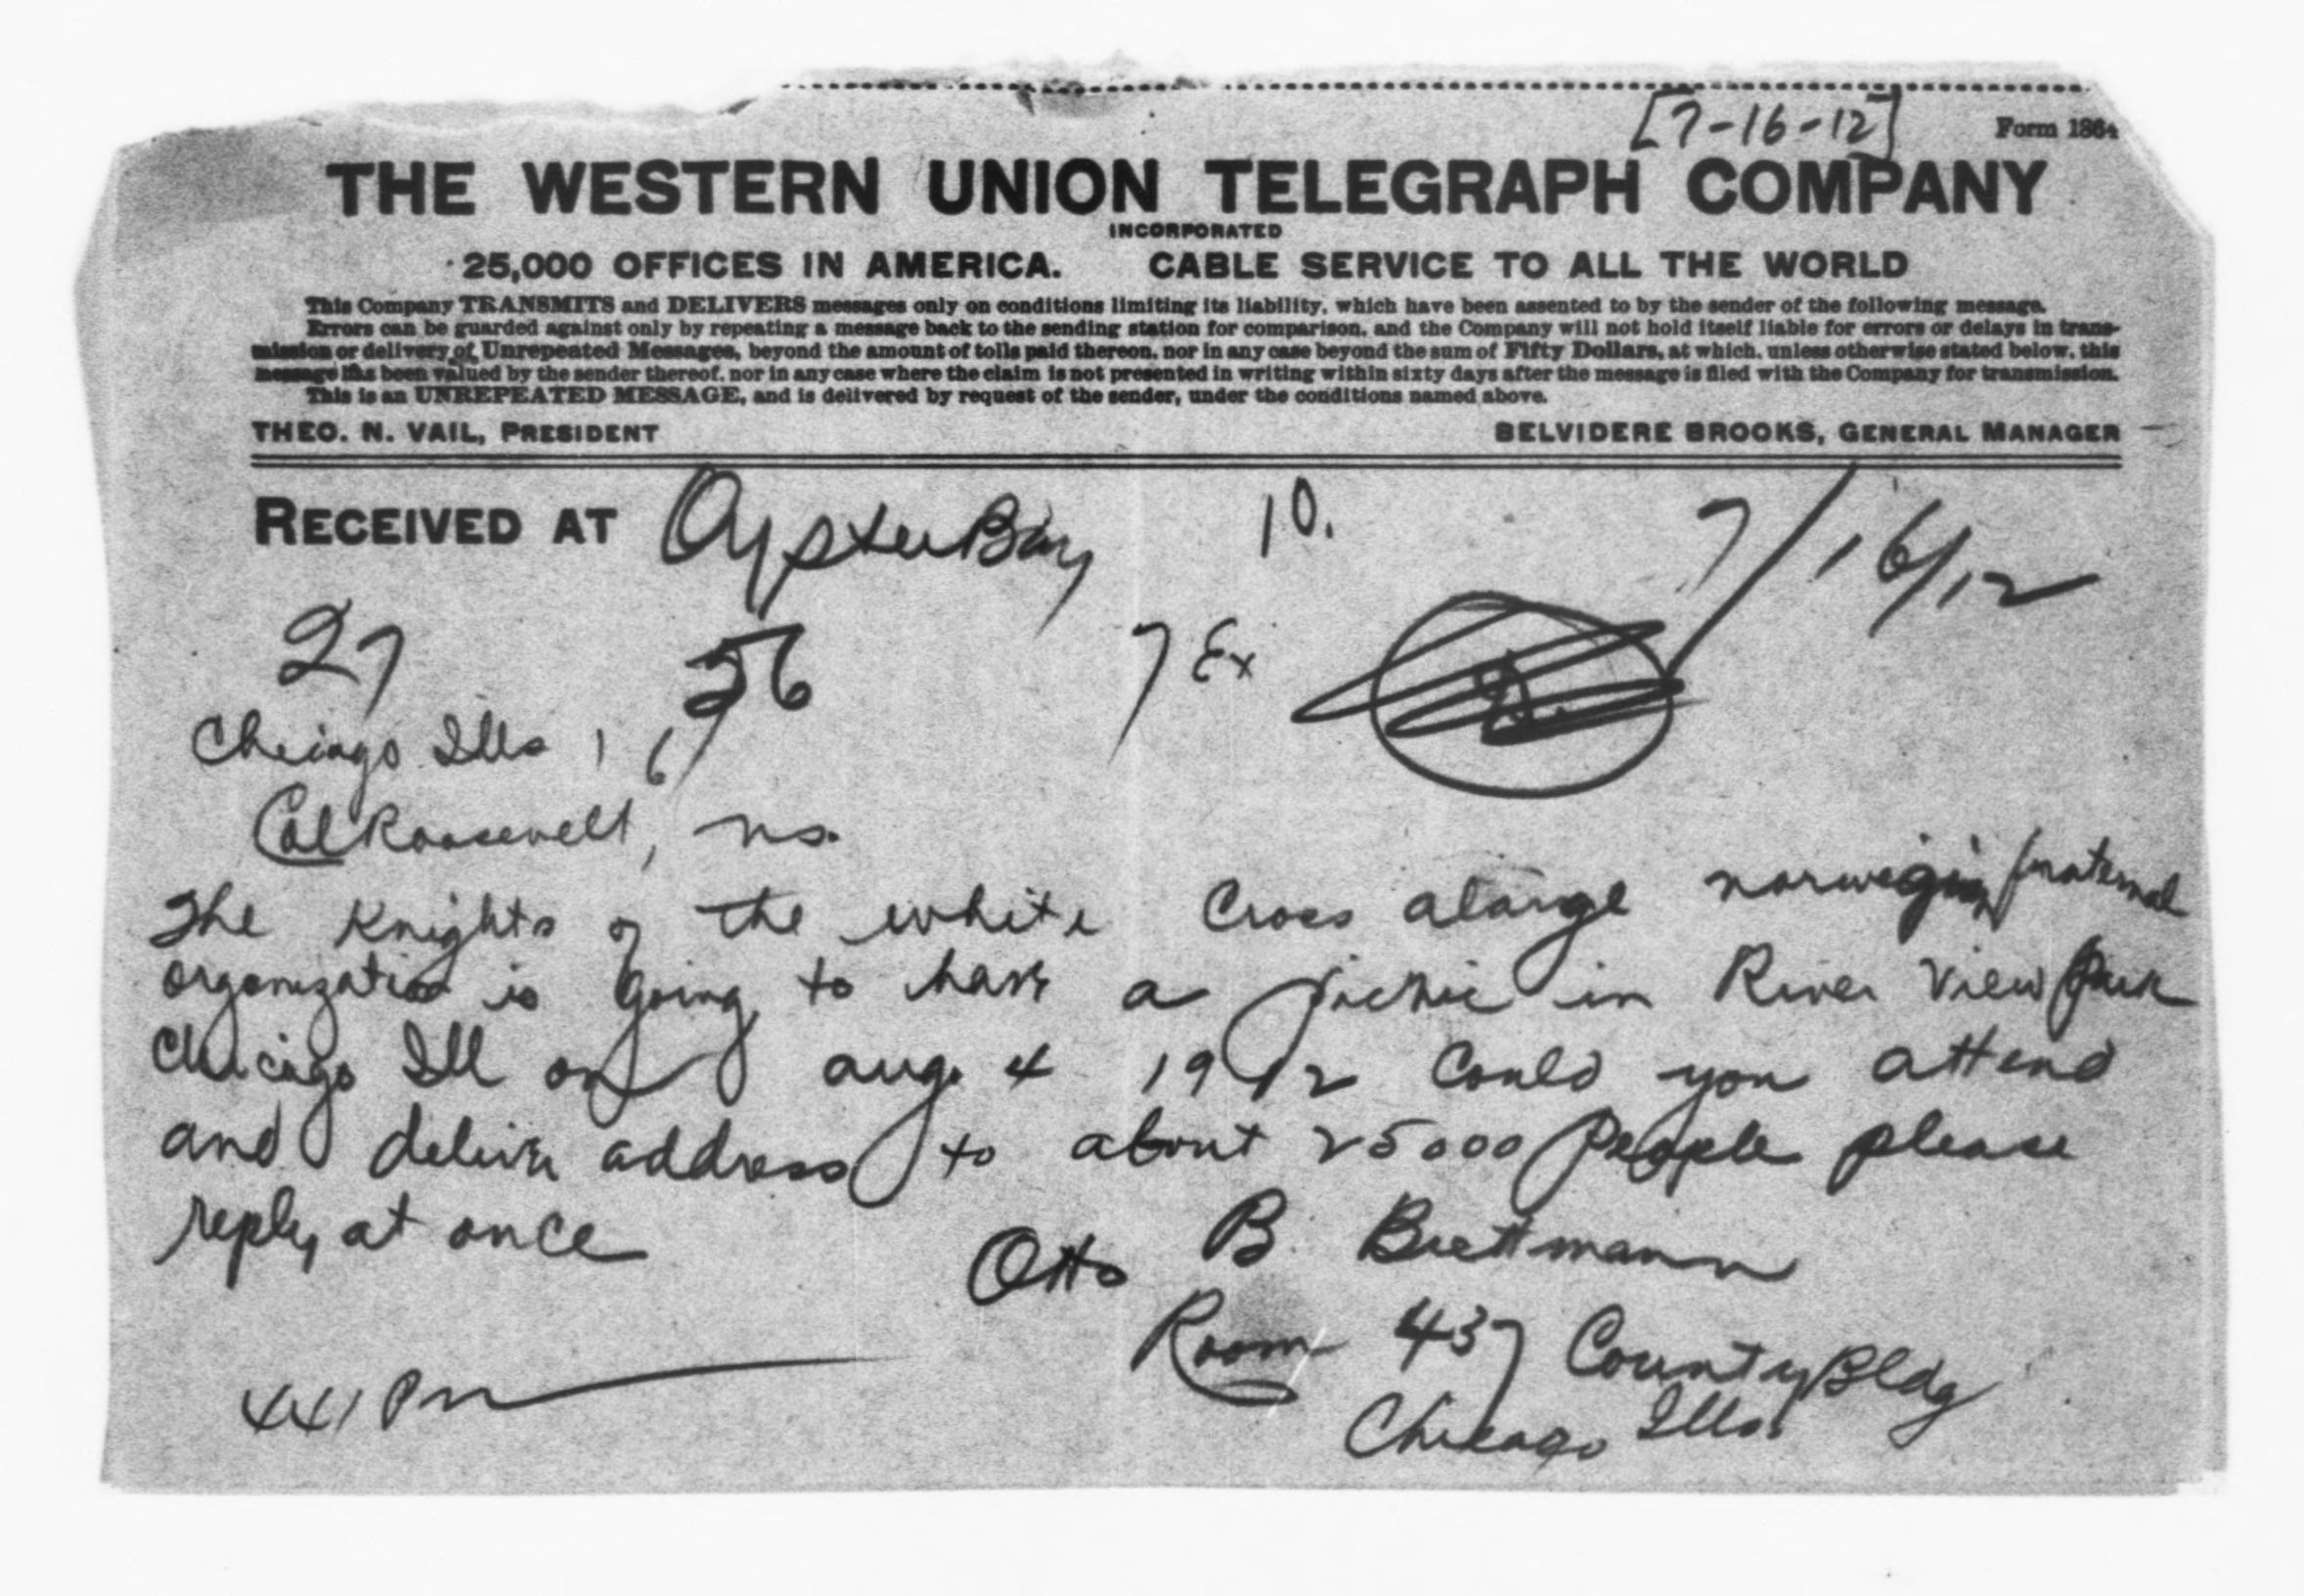 [7-16-12]
Form 1864
THE WESTERN UNION TELEGRAPH COMPANY
INCORPORATED
25,000 OFFICES IN AMERICA. CABLE SERVICE TO ALL THE WORLD
This Company TRANSMITS and DELIVERS messages only on conditions limiting its liability, which have been assented to by the sender of the following message.
Errors can be guarded against only by repeating a message back to the sending station for comparison, and the Company will not hold itself liable for errors or delays in trans-
mission or delivery of Unrepeated Messages, beyond the amount of tolls paid thereon, nor in any case beyond the sum of Fifty Dollars, at which, unless otherwise stated below, this
message has been valued by the sender thereof, nor in any case where the claim is not presented in writing within sixty days after the message is filed with the Company for transmission.
This is an UNREPEATED MESSAGE, and is delivered by request of the sender, under the conditions named above.
THEO. N. VAIL, PRESIDENT BELVIDERE BROOKS, GENERAL MANAGER
RECEIVED AT Oyster Bay 10. 7/16/12
27 56 7 Ex
Chicago Ills 16
Col Roosevelt, ns.
The Knights of the white Cross a large norwegian fraternal
organization is going to have a picnic in River View Park
Chicago Ill on aug. 4 1912 Could you attend
and deliver address to about 25000 people please
reply at once
Otto B. Brettmann
Room 437 County Bldg
Chicago Ills.
441 Pm